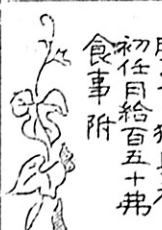 初任月給百五十弗
食事附